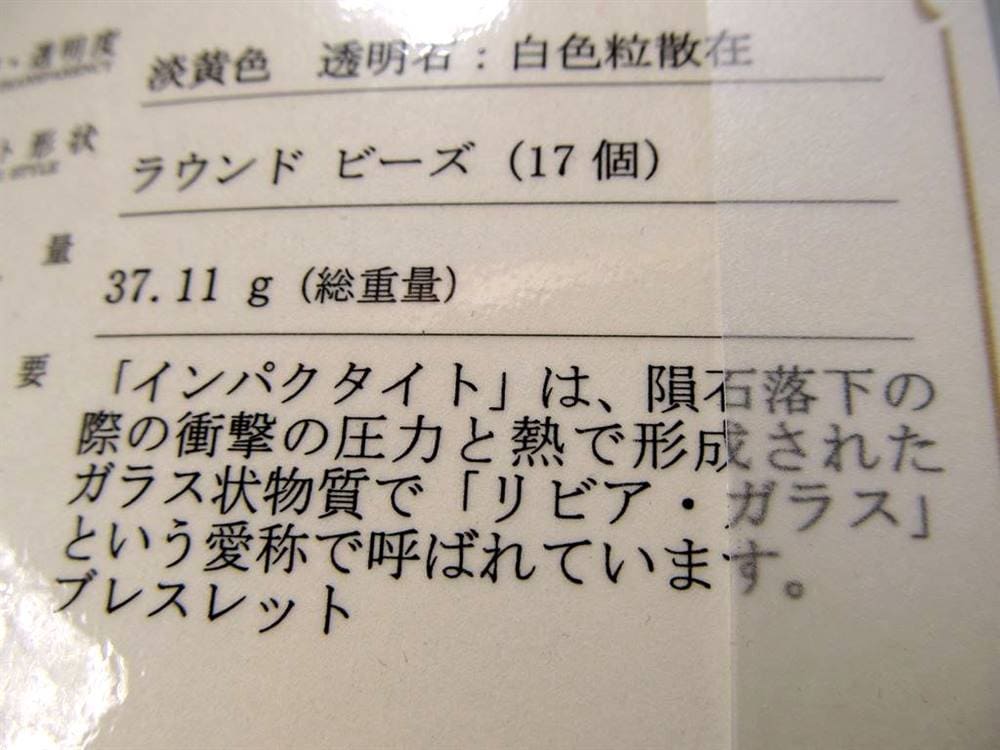 ・透明度 淡黄色 透明石：白色粒散在
TRANSPARENCY
ト形状 ラウンド ビーズ (17 個)
STYLE
量 37.11 g (総重量)
要 「インパクタイト」は、隕石落下の
際の衝撃の圧力と熱で形成された
ガラス状物質で「リビア・ガラス」
という愛称で呼ばれています。
ブレスレット